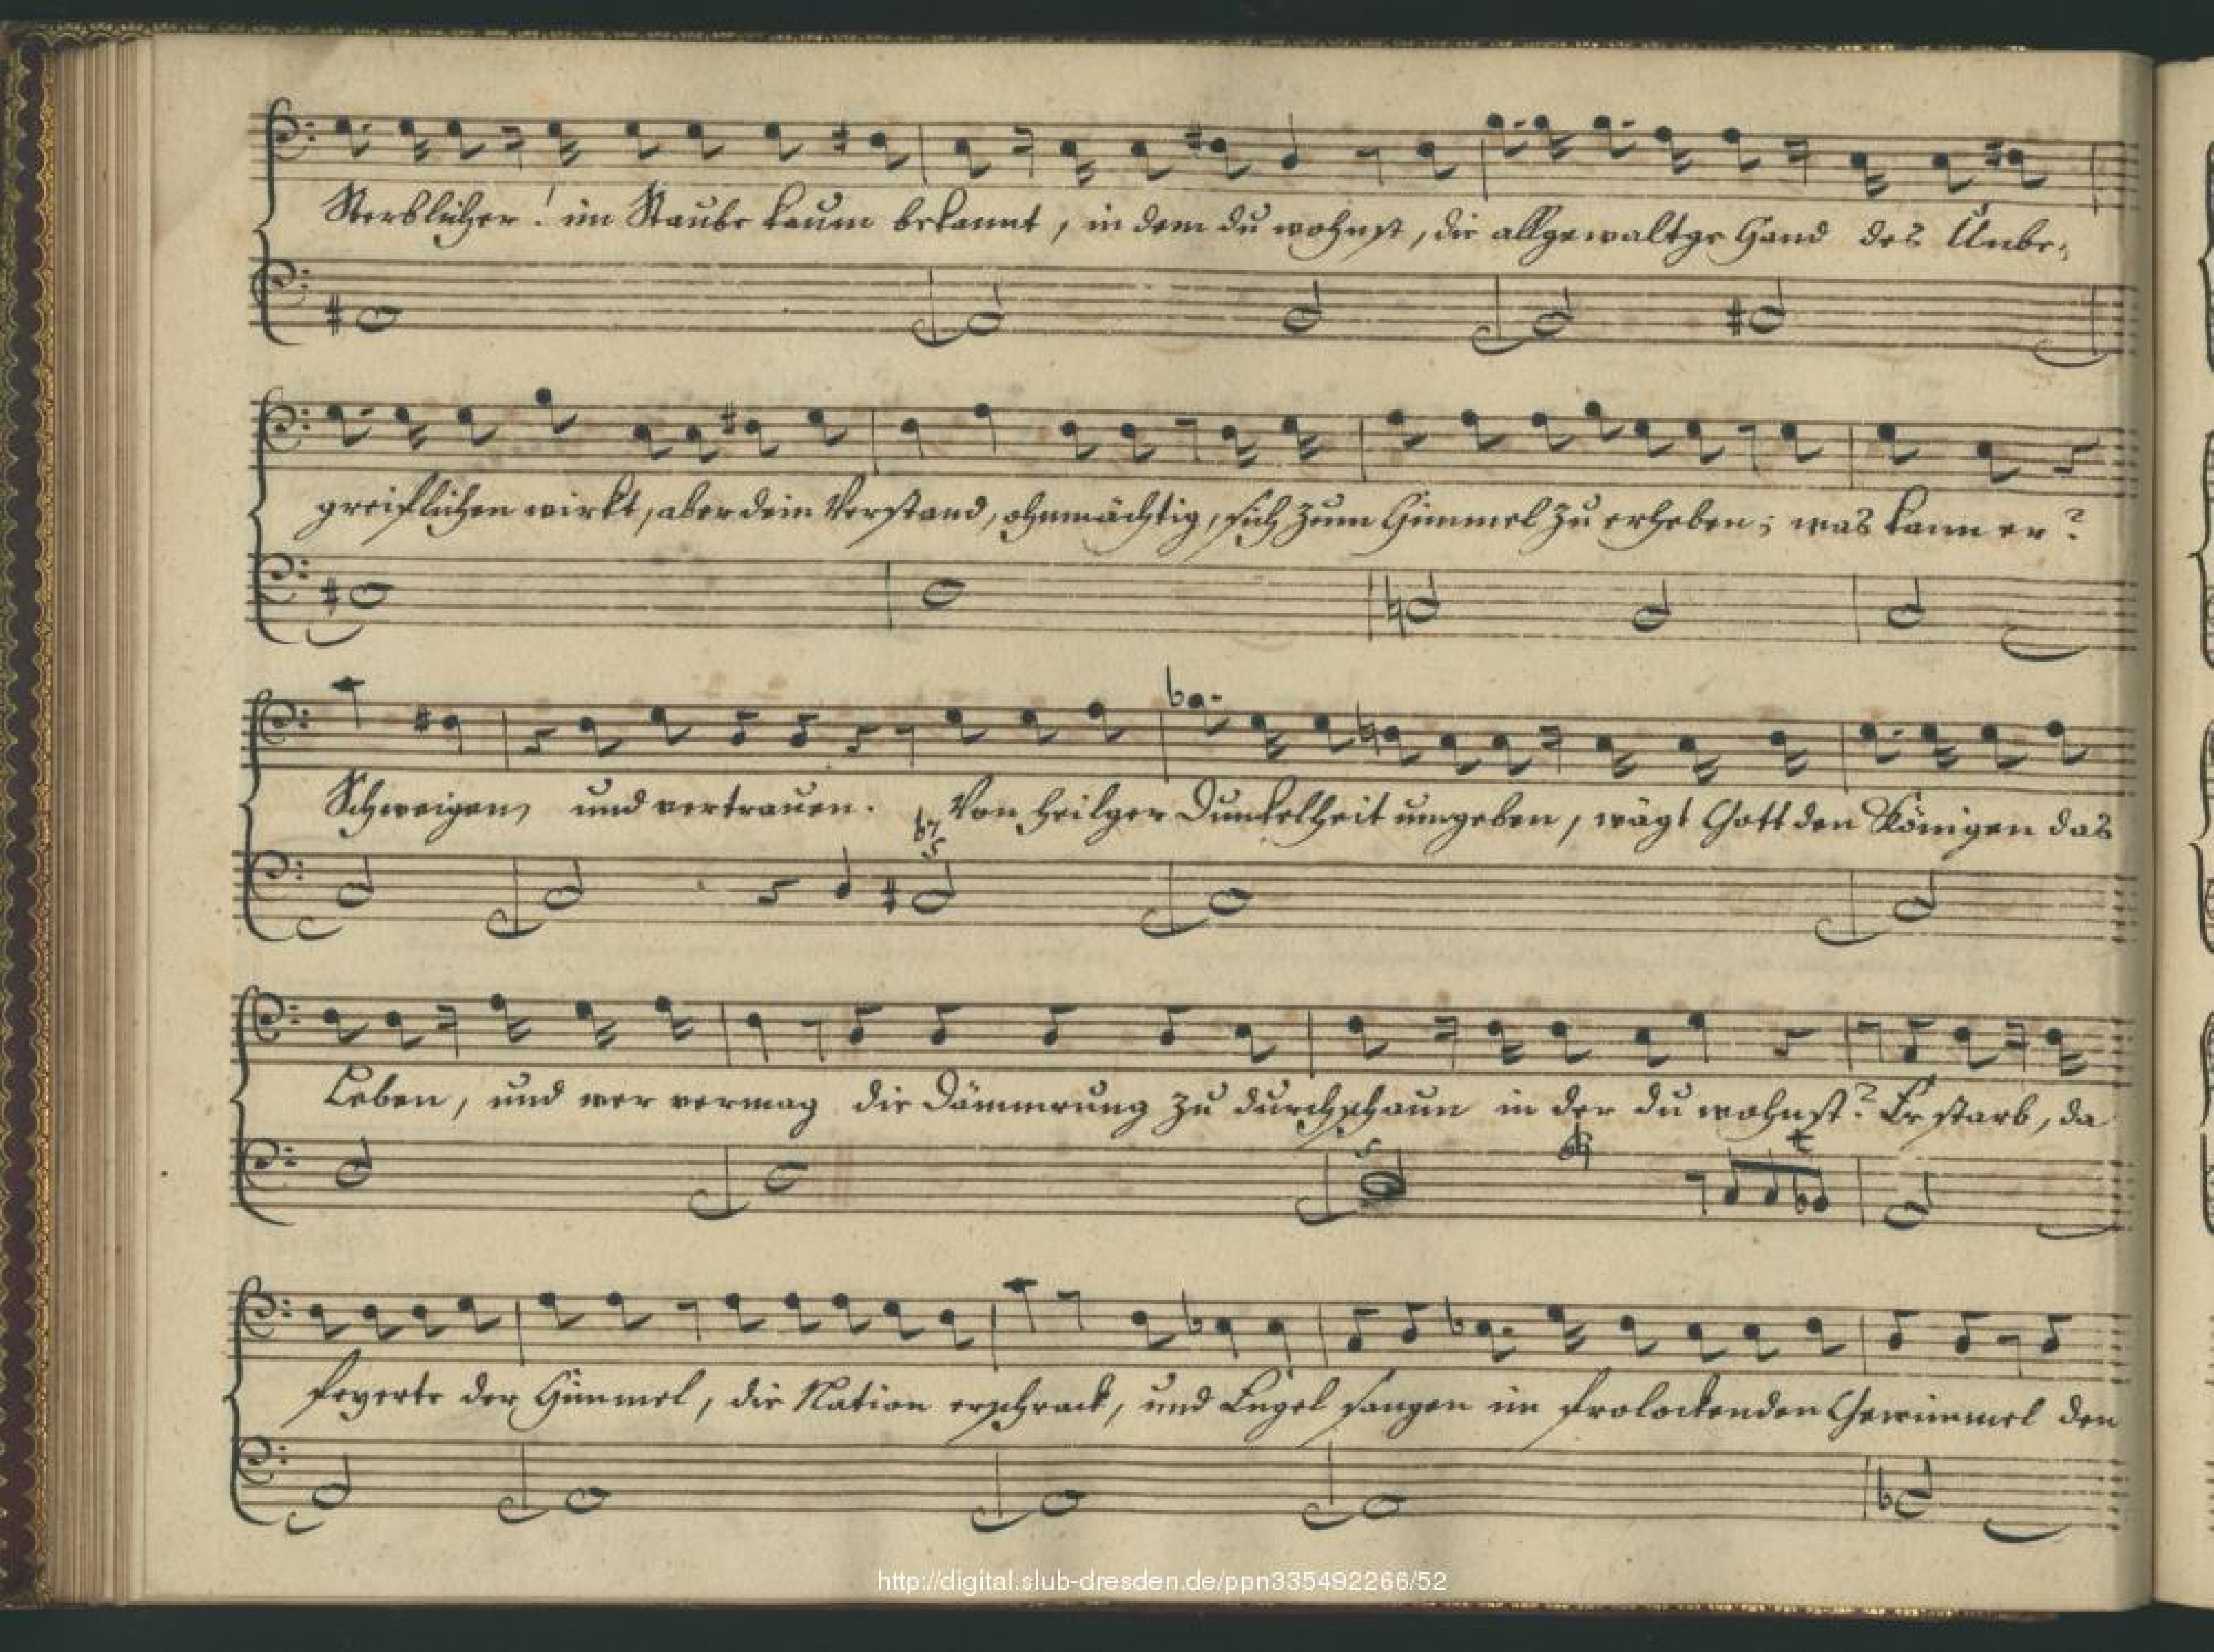 Sterblicher! im Staube kaum bekannt, in dem du wohnst, die allgewaltge Hand des Unbe-
greiflichen wirkt, aber dein Verstand, ohnmächtig, sich zum Himmel zu erheben; was kann er?
Schweigen, und vertrauen. Von heilger Dunkelheit umgeben, wägt Gott den Königen das
Leben, und wer vermag die Dämmrung zu durchschaun in der du wohnst? Er starb, da
feyerte der Himmel, die Nation erschrack, und Engel sangen im frolockenden Gewimmel den
http://digital.slub-dresden.de/ppn335492266/52